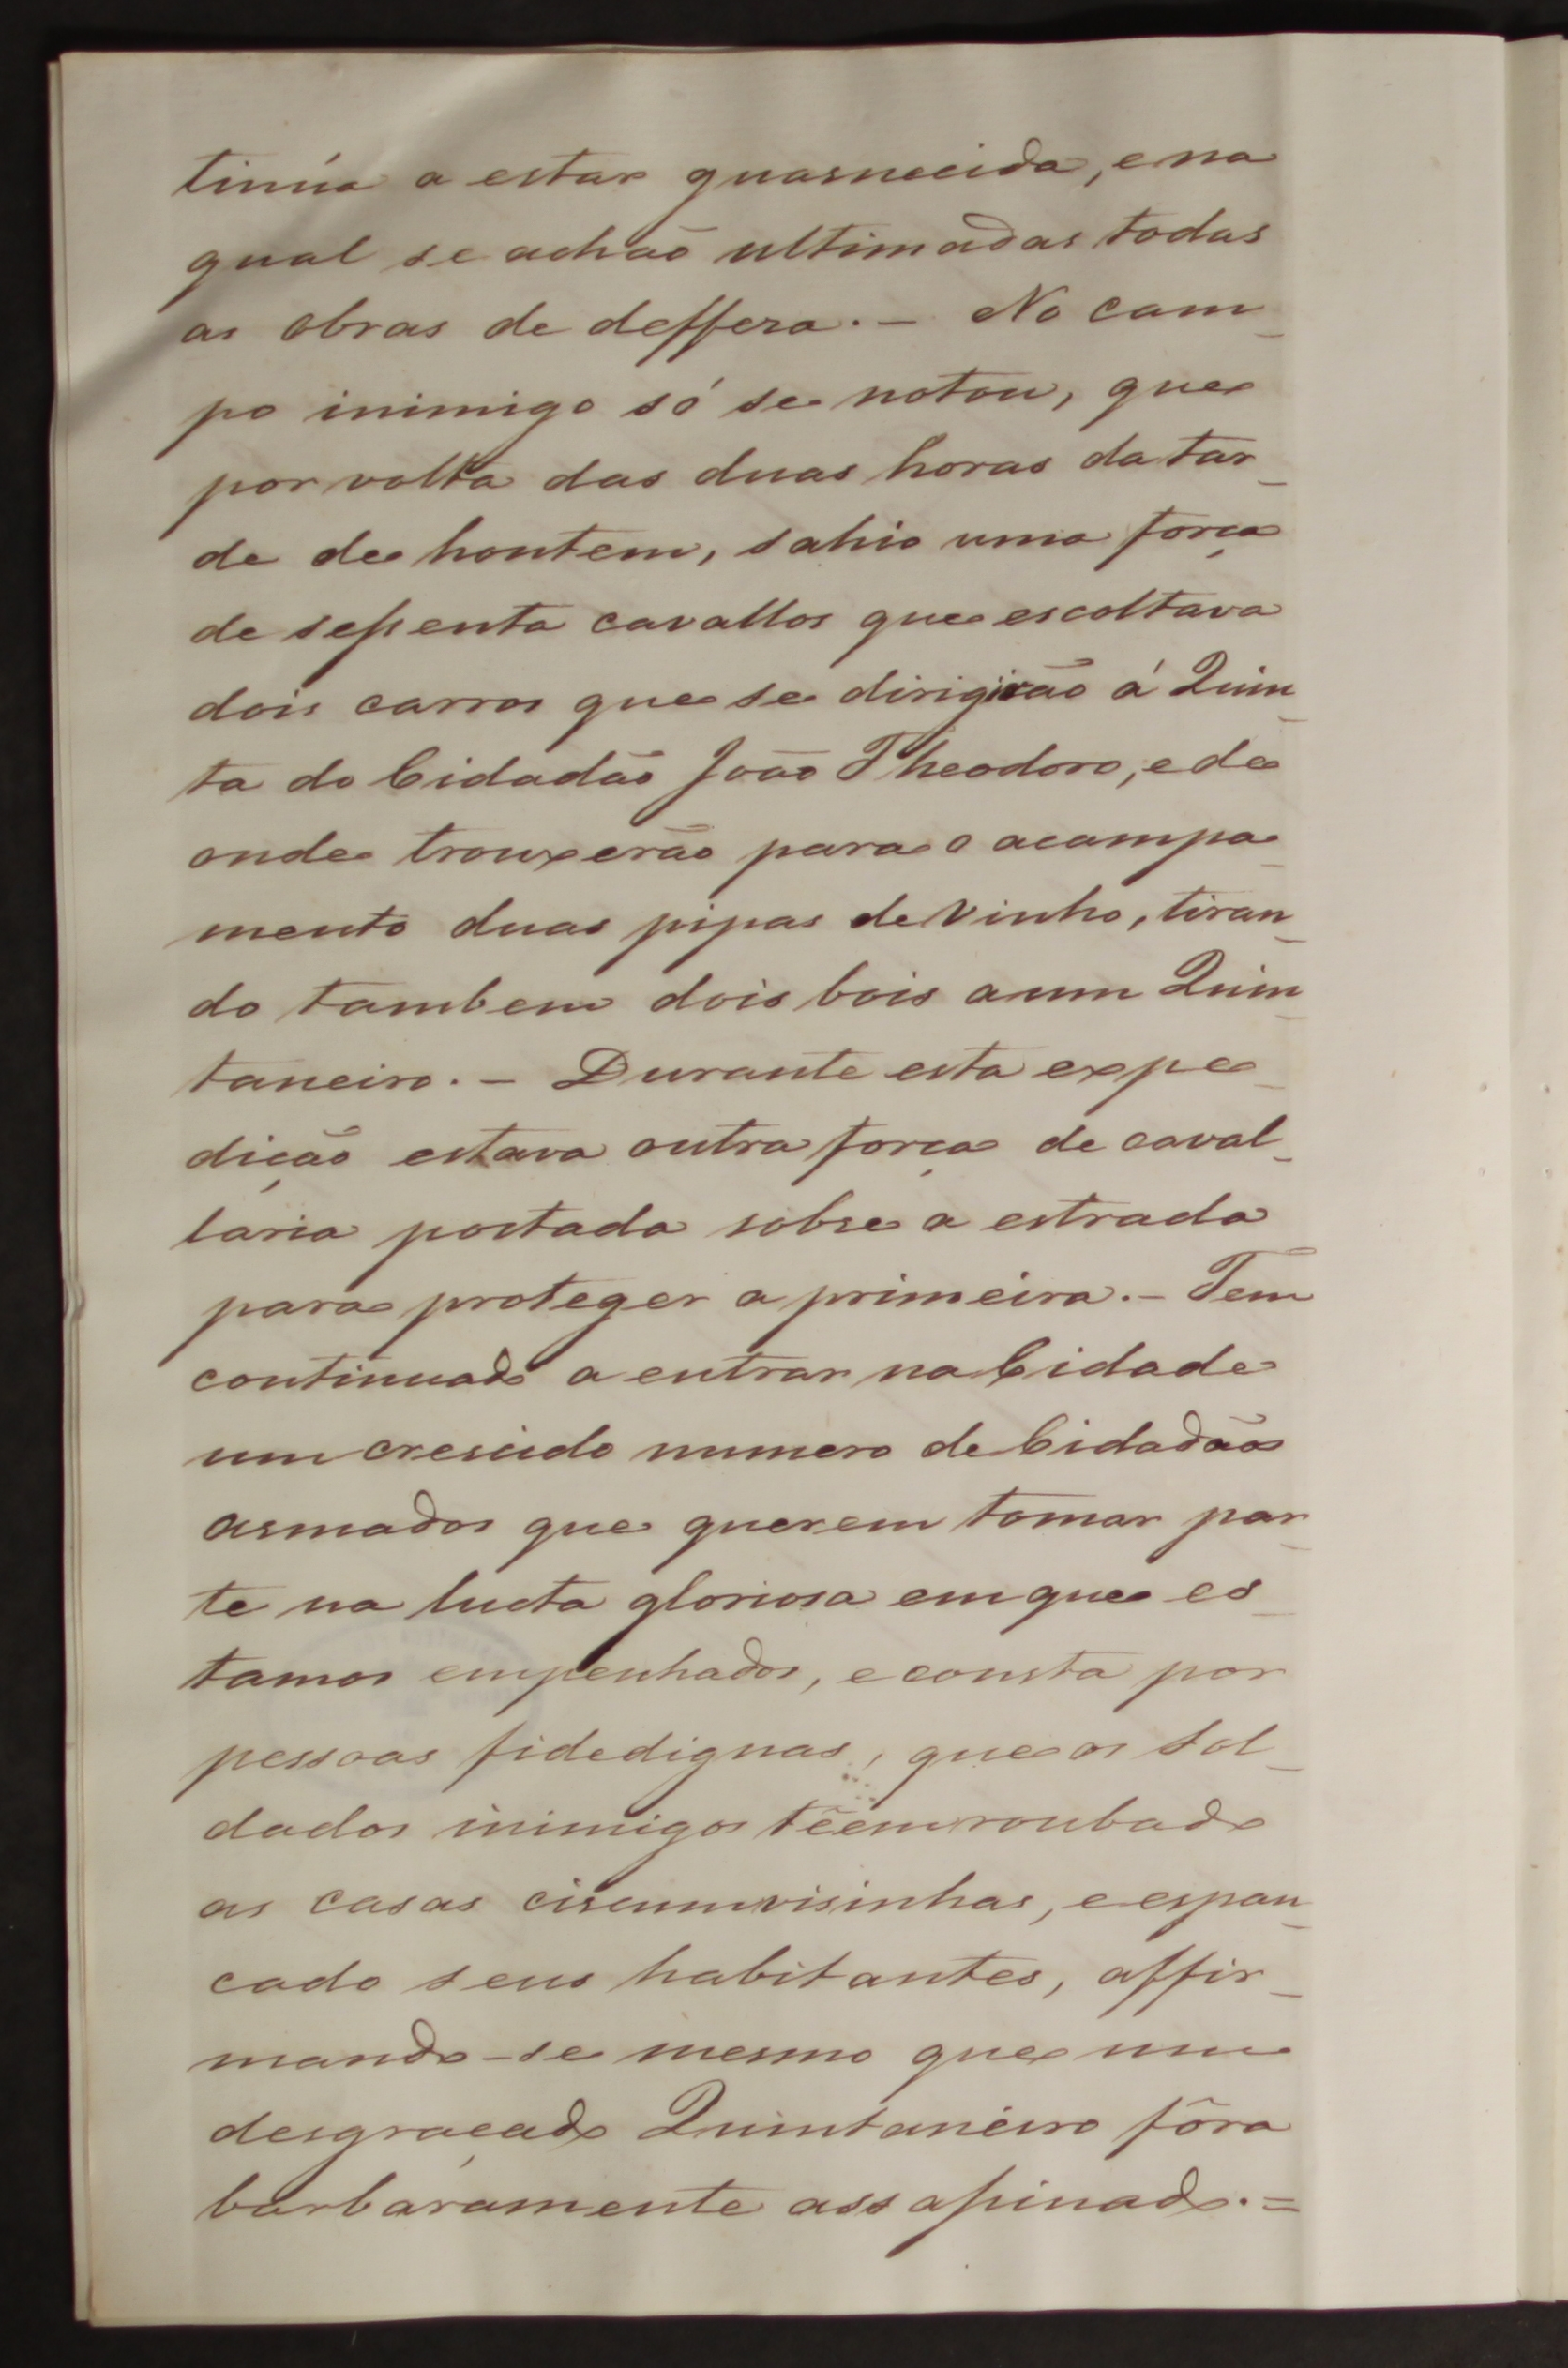 tinúa a estar guarnecida, e na
qual se achão ultimadas todas
as obras de deffeza. — No cam_
po inimigo só se notou, que
por volta das duas horas da tar_
de de hontem, sahio uma força
de sessenta cavallos que escoltava
dois carros que se dirigirão á Quin_
ta do Cidadão João Theodoro, e de
onde trouxerão para o acampa_
mento duas pipas de vinho, tiran_
do tambem dois bois a um Quin_
taneiro. — Durante esta expe_
dição estava outra força de caval_
laria postada sobre a estrada
para proteger a primeira. — Tem
continuado a entrar na Cidade
um crescido numero de Cidadãos
armados que querem tomar par_
te na lucta gloriosa em que es_
tamos empenhados, e consta por
pessoas fidedignas, que os sol_
dados inimigos têem roubado
as casas circumvisinhas, e espan_
cado seus habitantes, affir_
mando-se mesmo que um
desgraçado Quintaneiro fôra
barbaramente assassinado. =